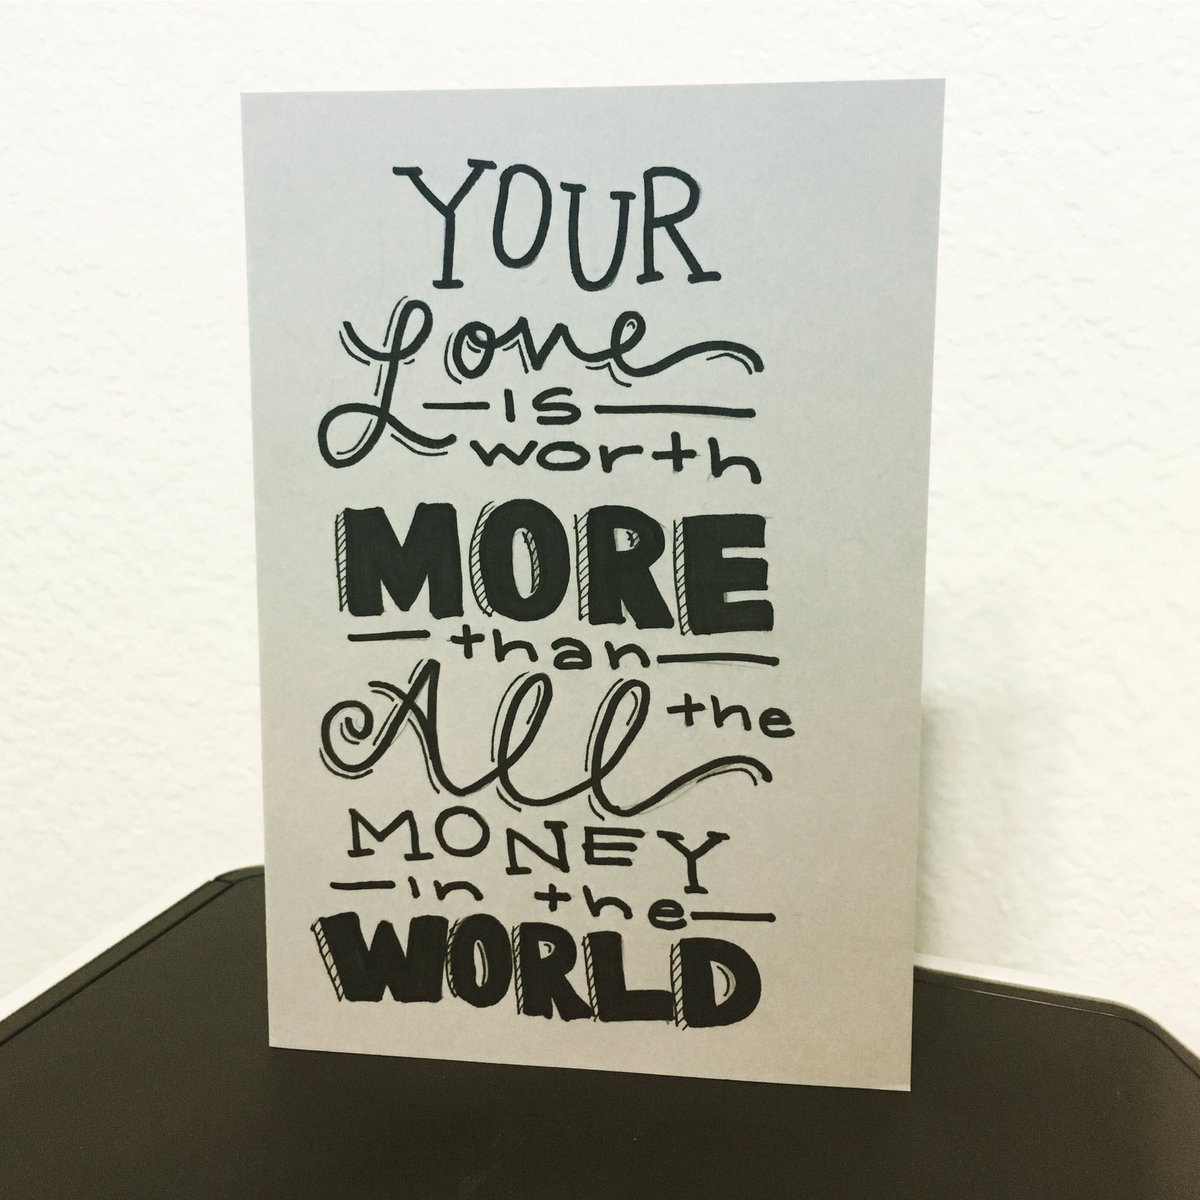 YOUR
Love
is
worth
MORE
than
All the
MONEY
in the
WORLD